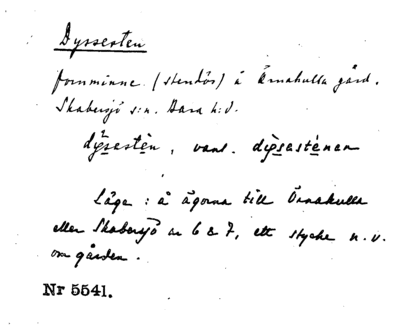 Dyssesten
fornminne (stendös) å Örnakulla gård.
Skabersjö s:n. Bara h:d.
dy̆sastèn, vanl. dy̆sasténan
Läge: å ägorna till Örnakulla
eller Skabersjö nr 6 & 7, ett stycke n.v.
om gården.
Nr 5541.